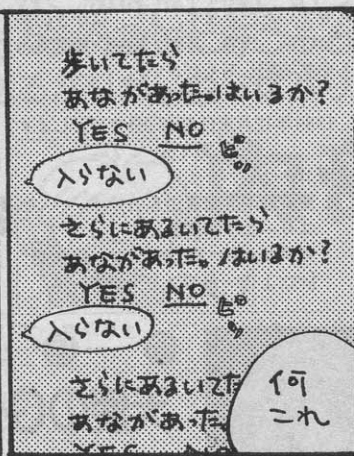 歩いてたら
あながあった。はいるか?
YES NO ピッ
入らない
さらにあるいてたら
あながあった。はいるか?
YES NO ピッ
入らない
さらにあるいてた
あながあった。
YES NO
何
これ